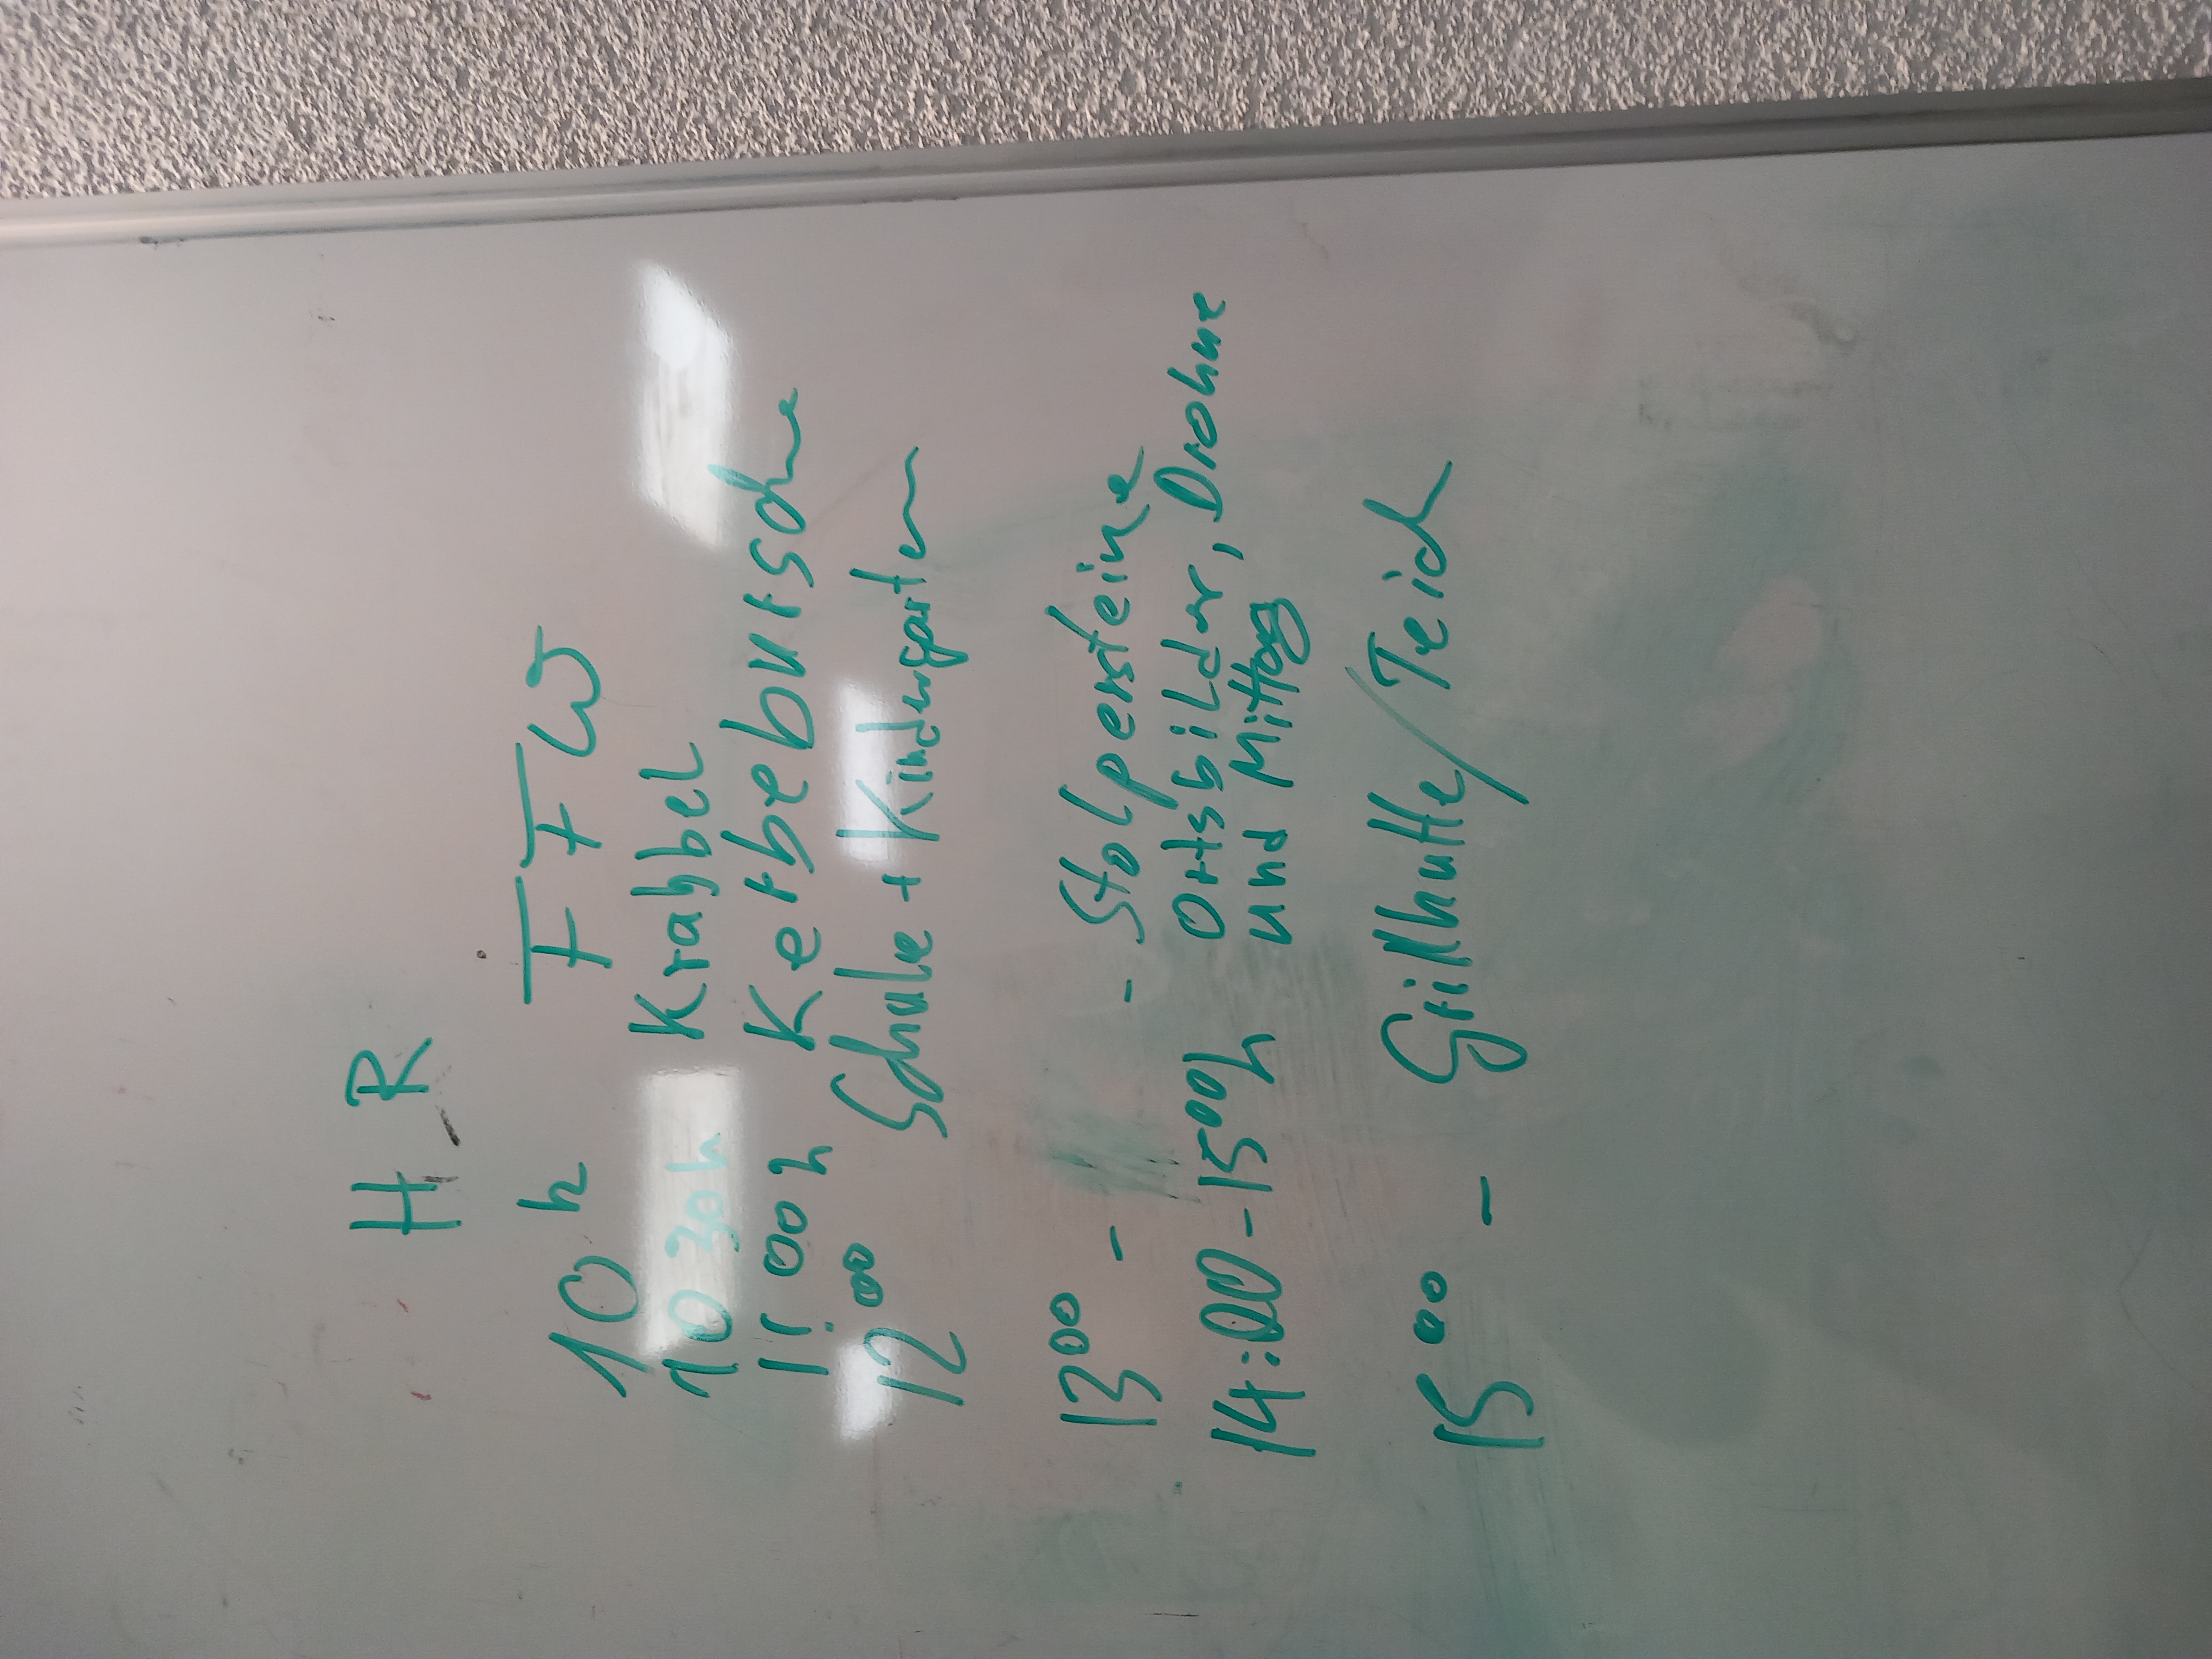 H R
10 h FFW
10 30h Krabbel
11:00h Kerbebursche
12 00 Schule + Kindergarten
13 00 - - Stolpersteine
14:00-1500h Ortsbilder, Drohne
und Mittag
15 00 - Grillhütte/Teich